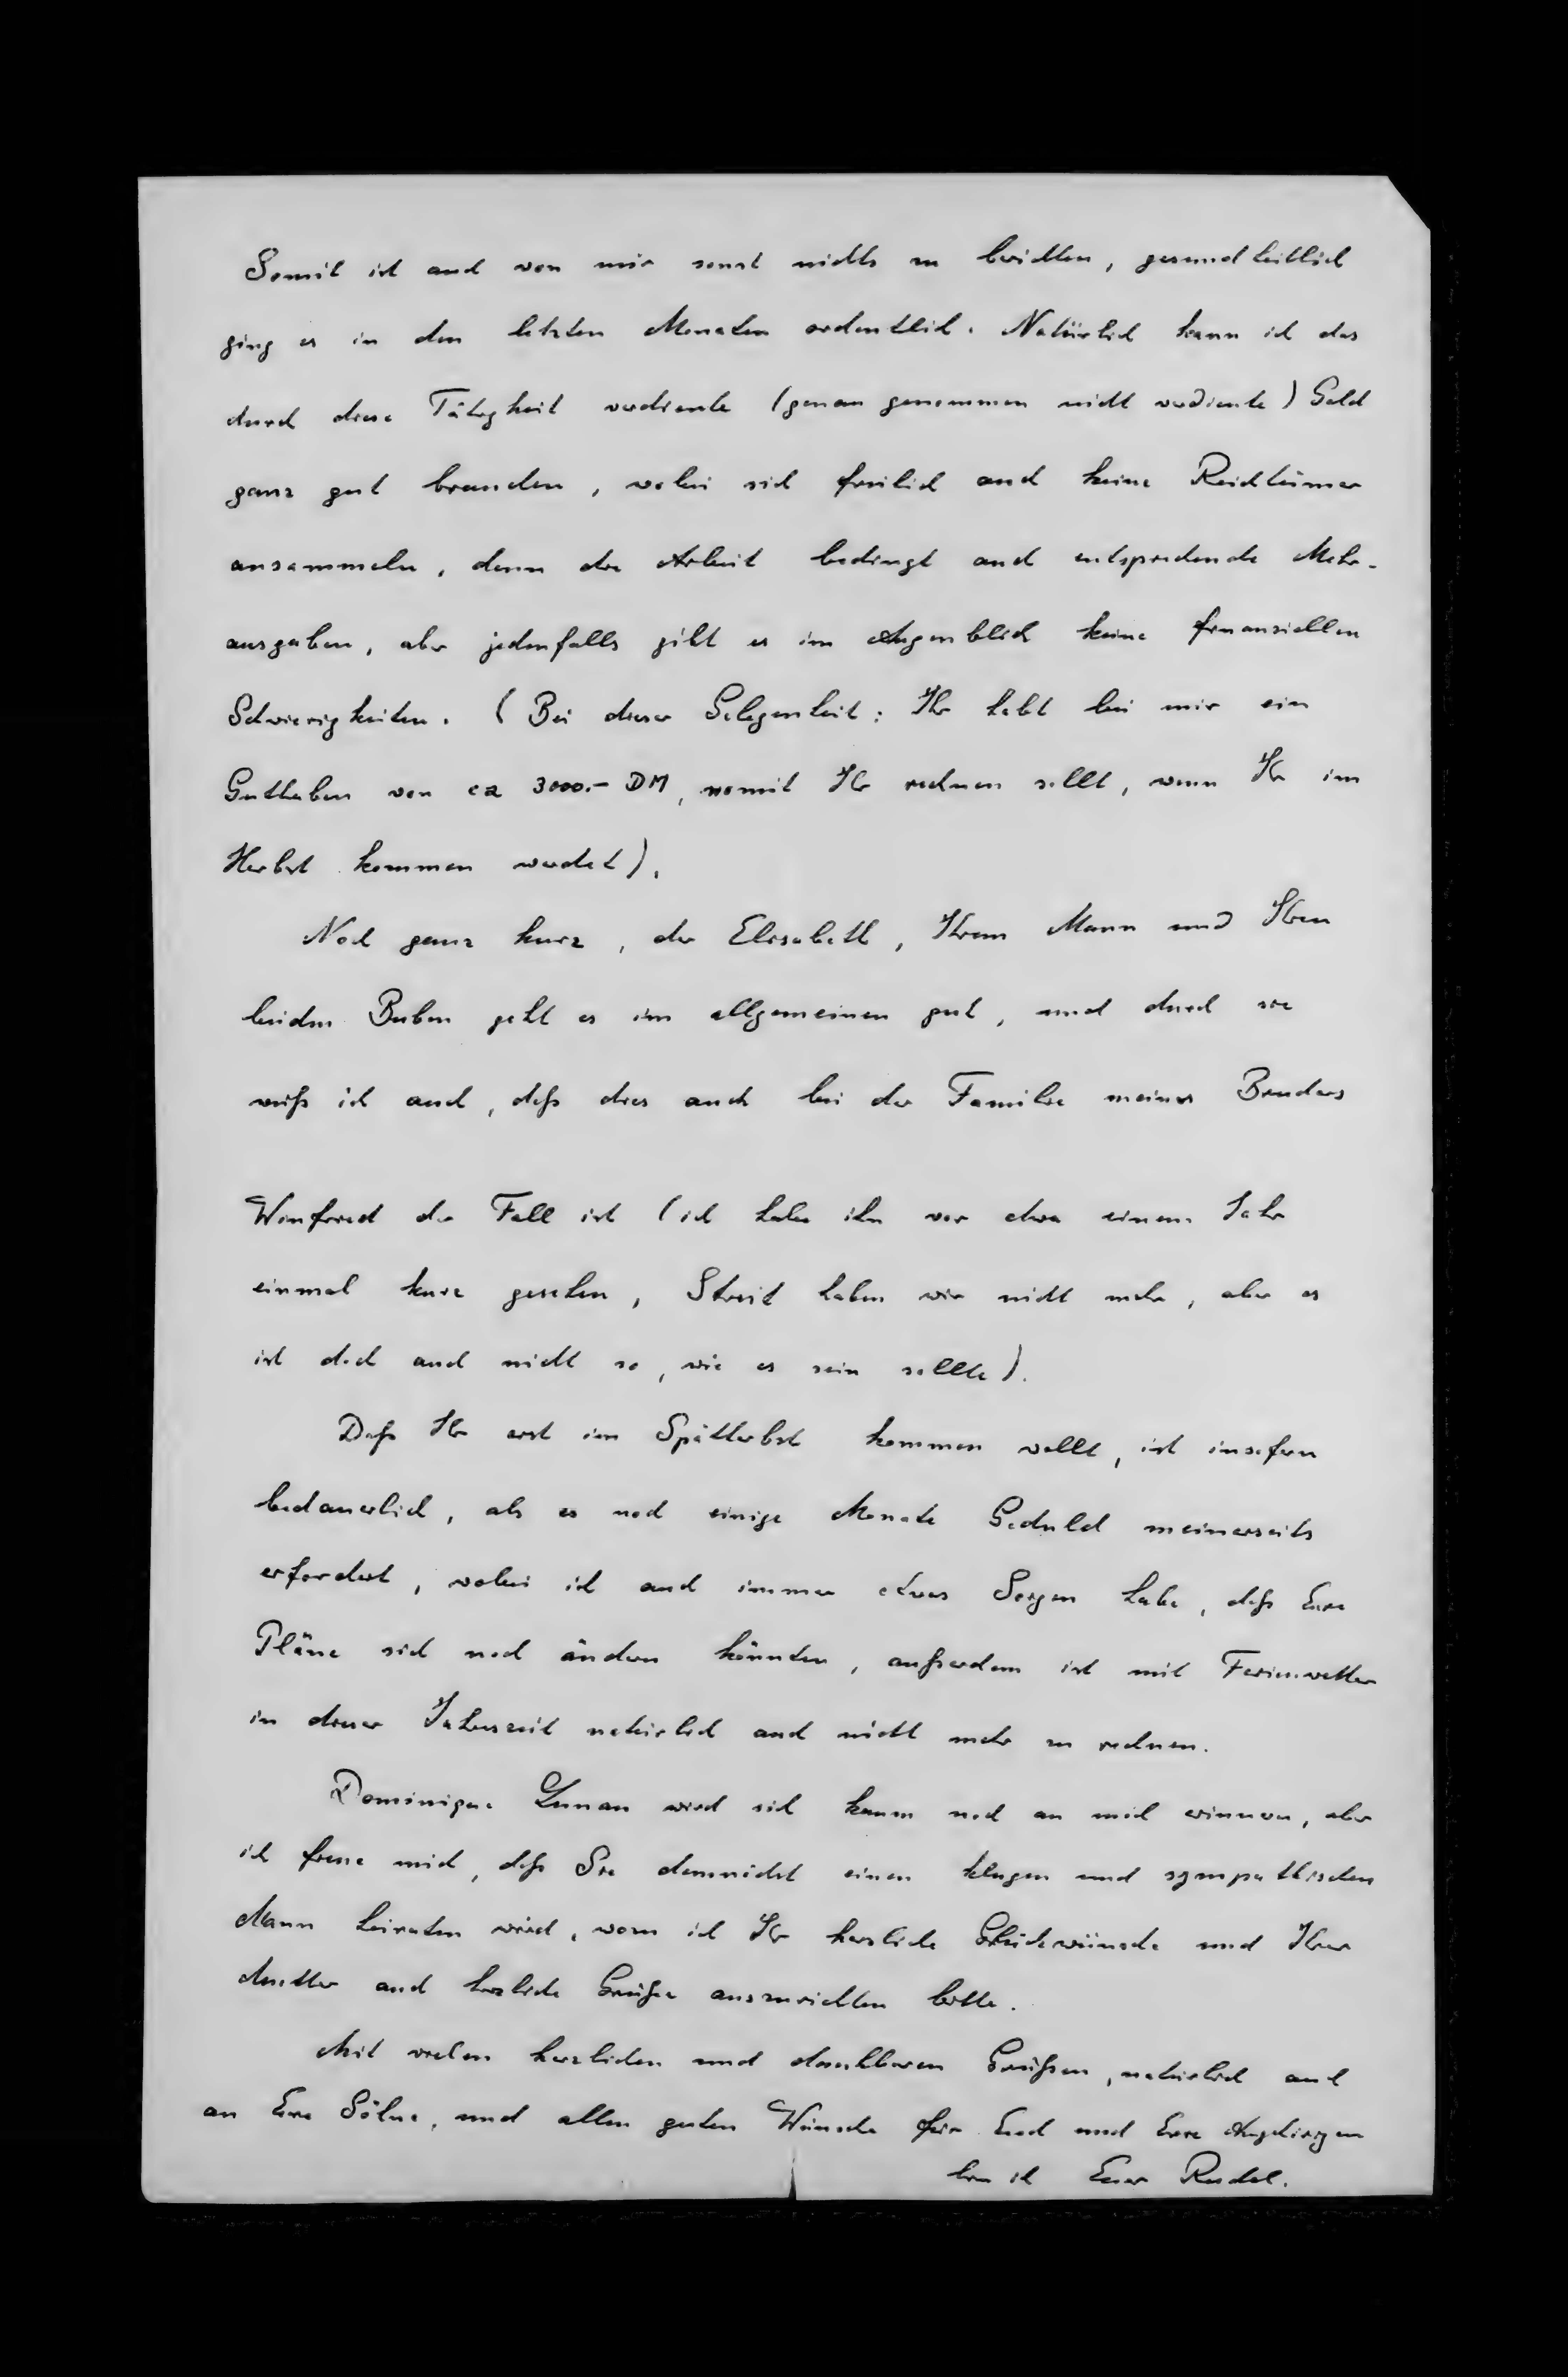 Somit ist auch von mir sonst nichts zu berichten, gesundheitlich
ging es in den letzten Monaten ordentlich. Natürlich kann ich das
durch diese Tätigkeit verdiente (genau genommen nicht verdiente) Geld
ganz gut brauchen, wobei sich freilich auch keine Reichtümer
ansammeln, denn die Arbeit bedingt auch entsprechende Mehr-
ausgaben, aber jedenfalls gibt es im Augenblick keine finanziellen
Schwierigkeiten. (Bei dieser Gelegenheit: Ihr habt bei mir ein
Guthaben von ca 3000.- DM, womit Ihr rechnen sollt, wenn Ihr im
Herbst kommen werdet).
Noch ganz kurz, der Elisabeth, Ihrem Mann und Ihren
beiden Buben geht es im allgemeinen gut, und durch sie
weiß ich auch, daß dies auch bei der Familie meines Bruders
Winfried der Fall ist (ich habe ihn vor etwa einem Jahr
einmal kurz gesehen, Streit haben wir nicht mehr, aber es
ist doch auch nicht so, wie es sein sollte).
Daß Ihr erst im Spätherbst kommen wollt, ist insofern
bedauerlich, als es noch einige Monate Geduld meinerseits
erfordert, wobei ich auch immer etwas Sorgen habe, daß Eure
Pläne sich noch ändern könnten, außerdem ist mit Ferienwetter
in dieser Jahreszeit natürlich auch nicht mehr zu rechnen.
Dominique wird sich kaum noch an mich erinnern, aber
ich freue mich, daß Sie demnächst einen klugen und sympathischen
Mann heiraten wird, wozu ich Ihr herzliche Glückwünsche und Ihrer
Mutter auch herzliche Grüße auszurichten bitte.
Mit vielen herzlichen und dankbaren Grüßen, natürlich auch
an Eure Söhne, und allen guten Wünsche für Euch und Eure Angehörigen
bin ich Euer Rudol.